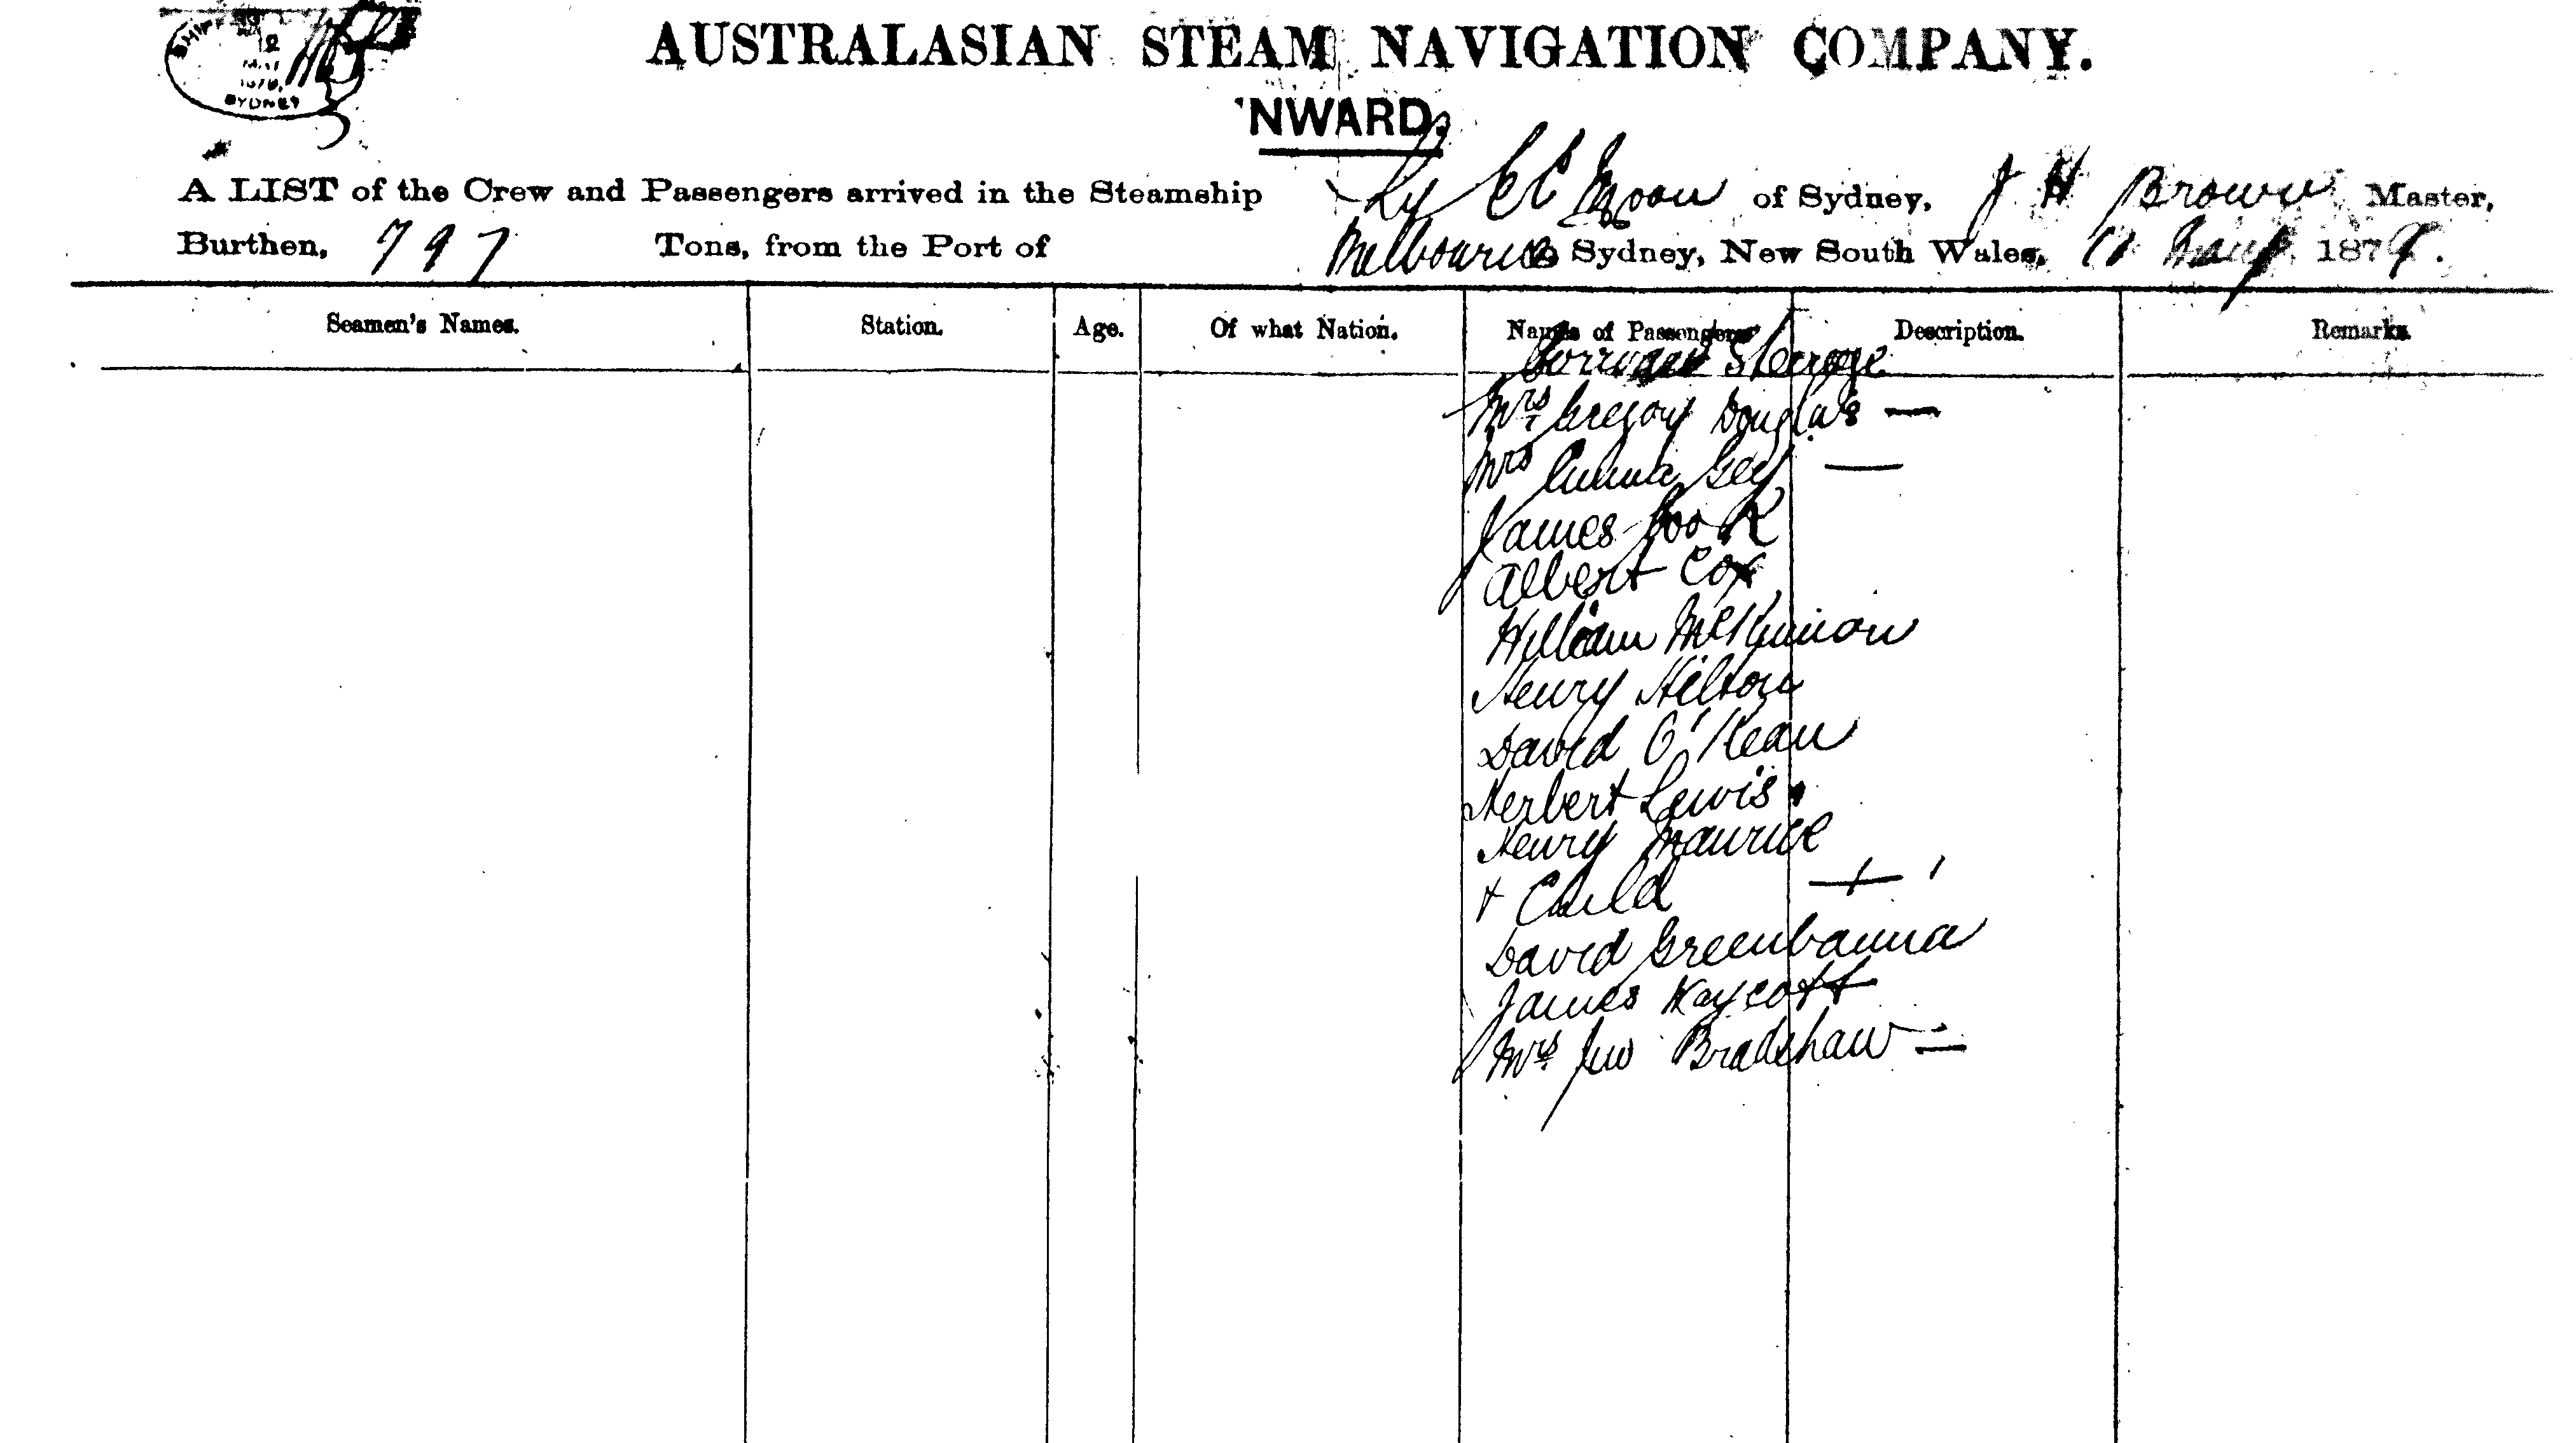 AUSTRALASIAN STEAM NAVIGATION COMPANY.
NWARD.
A LIST of the Crew and Passengers arrived in the Steamship Ly EE Moon of Sydney, J H Brown Master,
Burthen, 797 Tons, from the Port of Melbourne Sydney, New South Wales, 1879.
Seamen's Names. Station. Age. Of what Nation. Names of Passengers Description. Remarks.
Steerage
Mrs Gregory Douglas —
Mrs Emma Gey —
James Cook
Albert Cox
William McKinnon
Henry Hilton
David O'Kean
Herbert Lewis
Henry Maurice
+ Child
David Greenbauma
James Haycott
Mrs Bradshaw —
SYDNEY